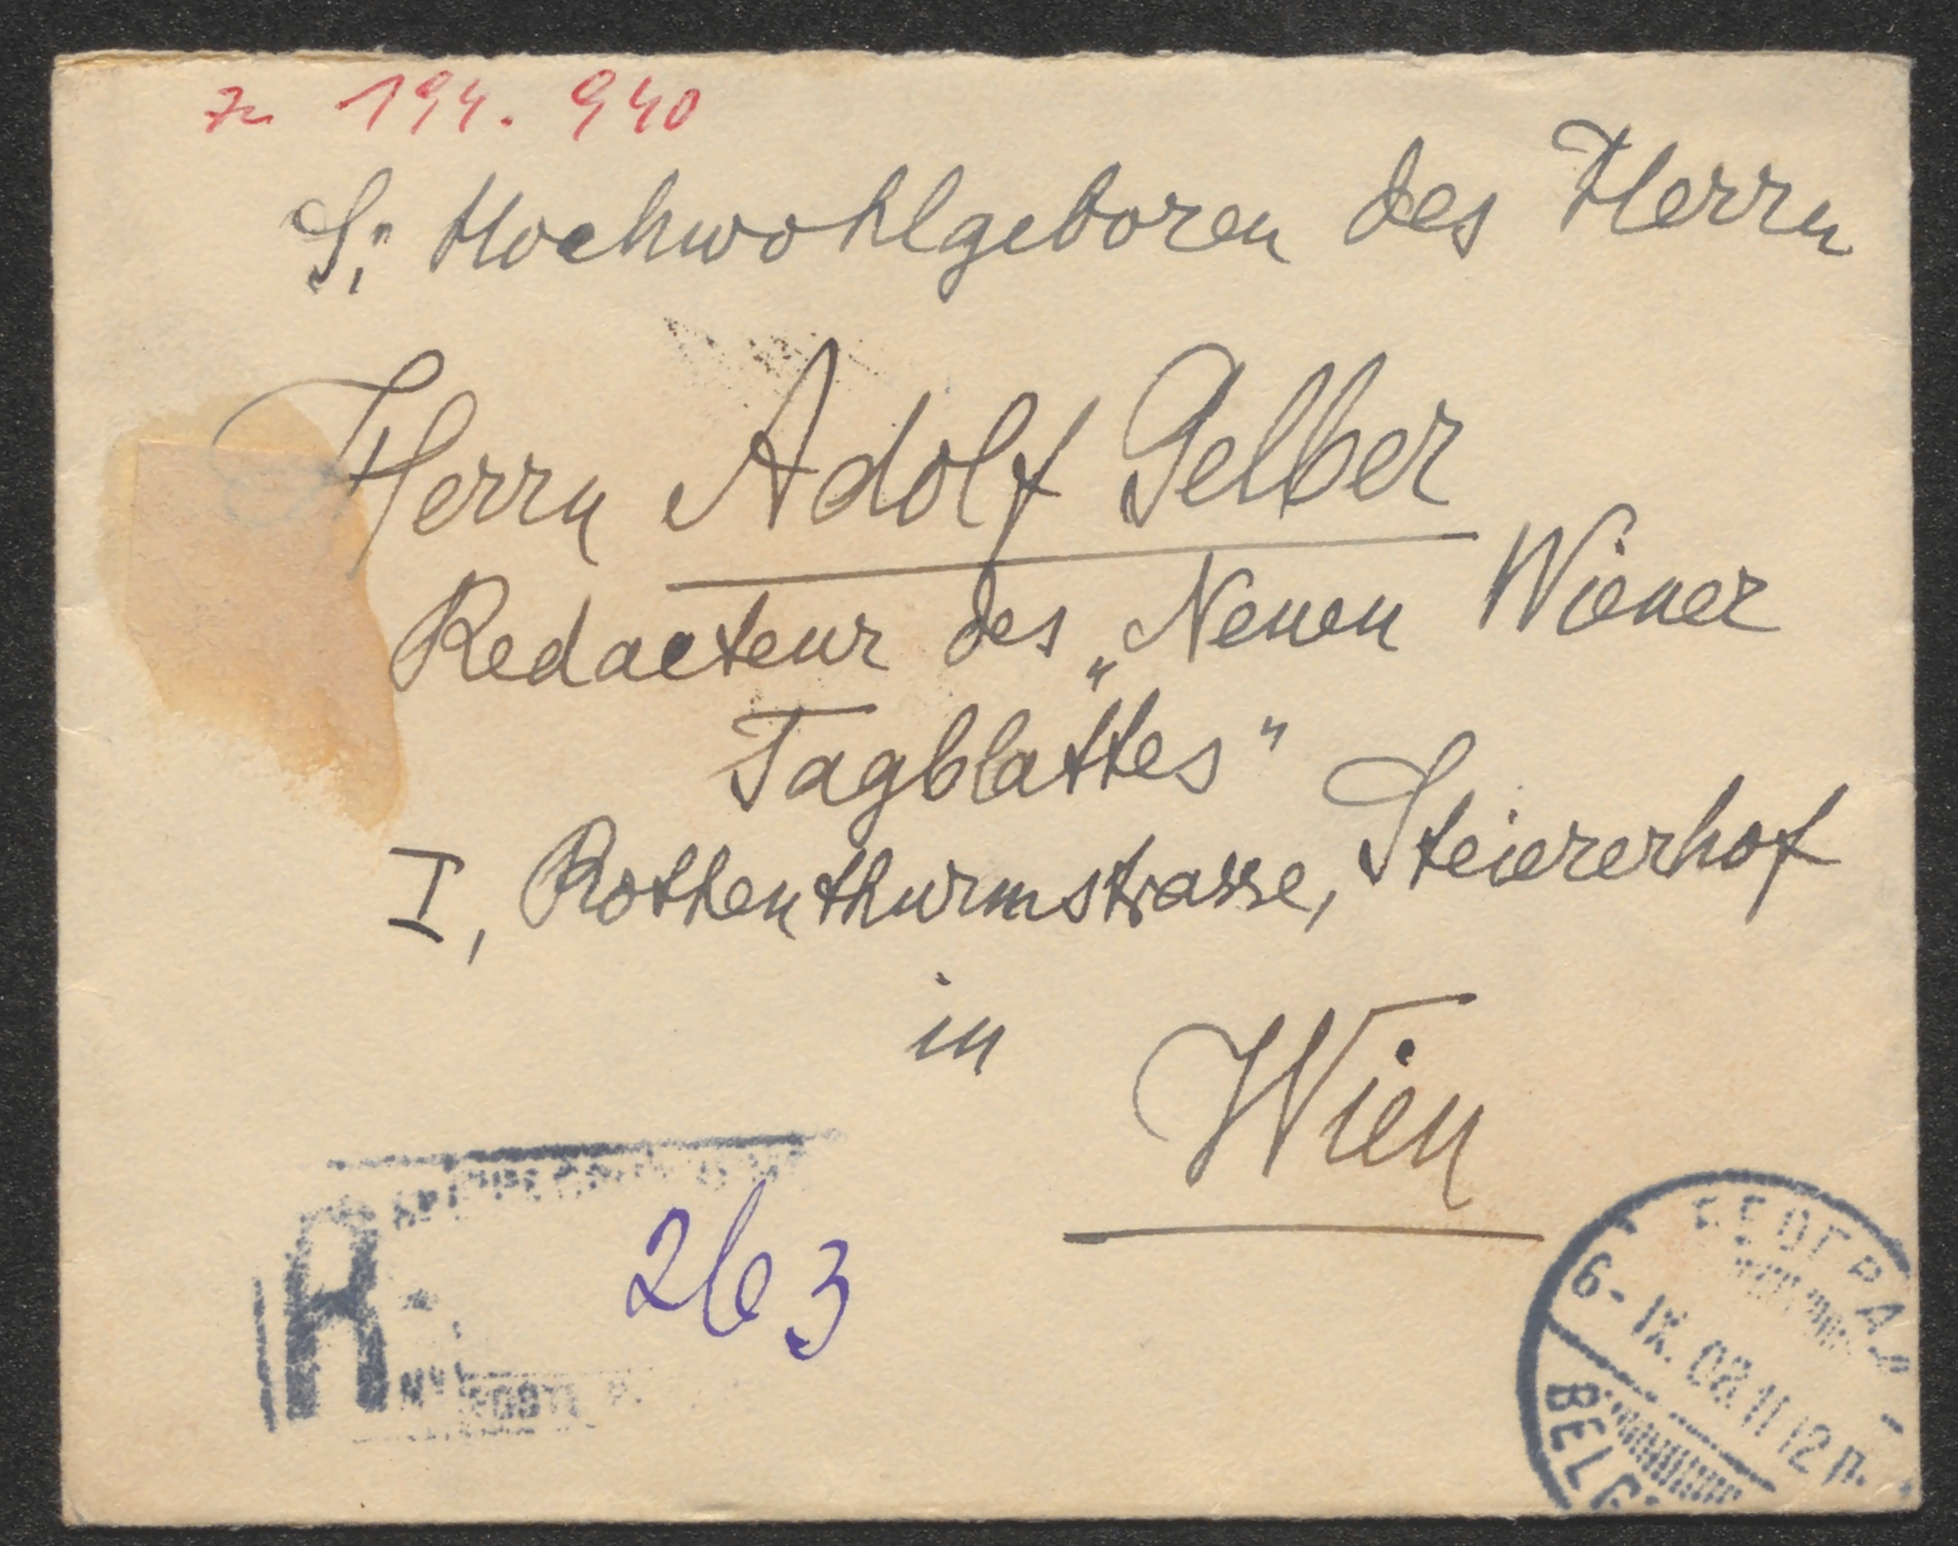 zu 194.940
Sr Hochwohlgeboren des Herrn
Herrn Adolf Gelber
Redacteur des „Neuen Wiener
Tagblattes"
I, Rothenthurmstrasse, Steiererhof
in Wien
R
263
БЕОГРАД
6-IX.08.11 12 П.
BELG